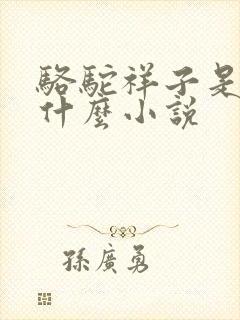 駱駝祥子是
什麼小説
孫廣勇